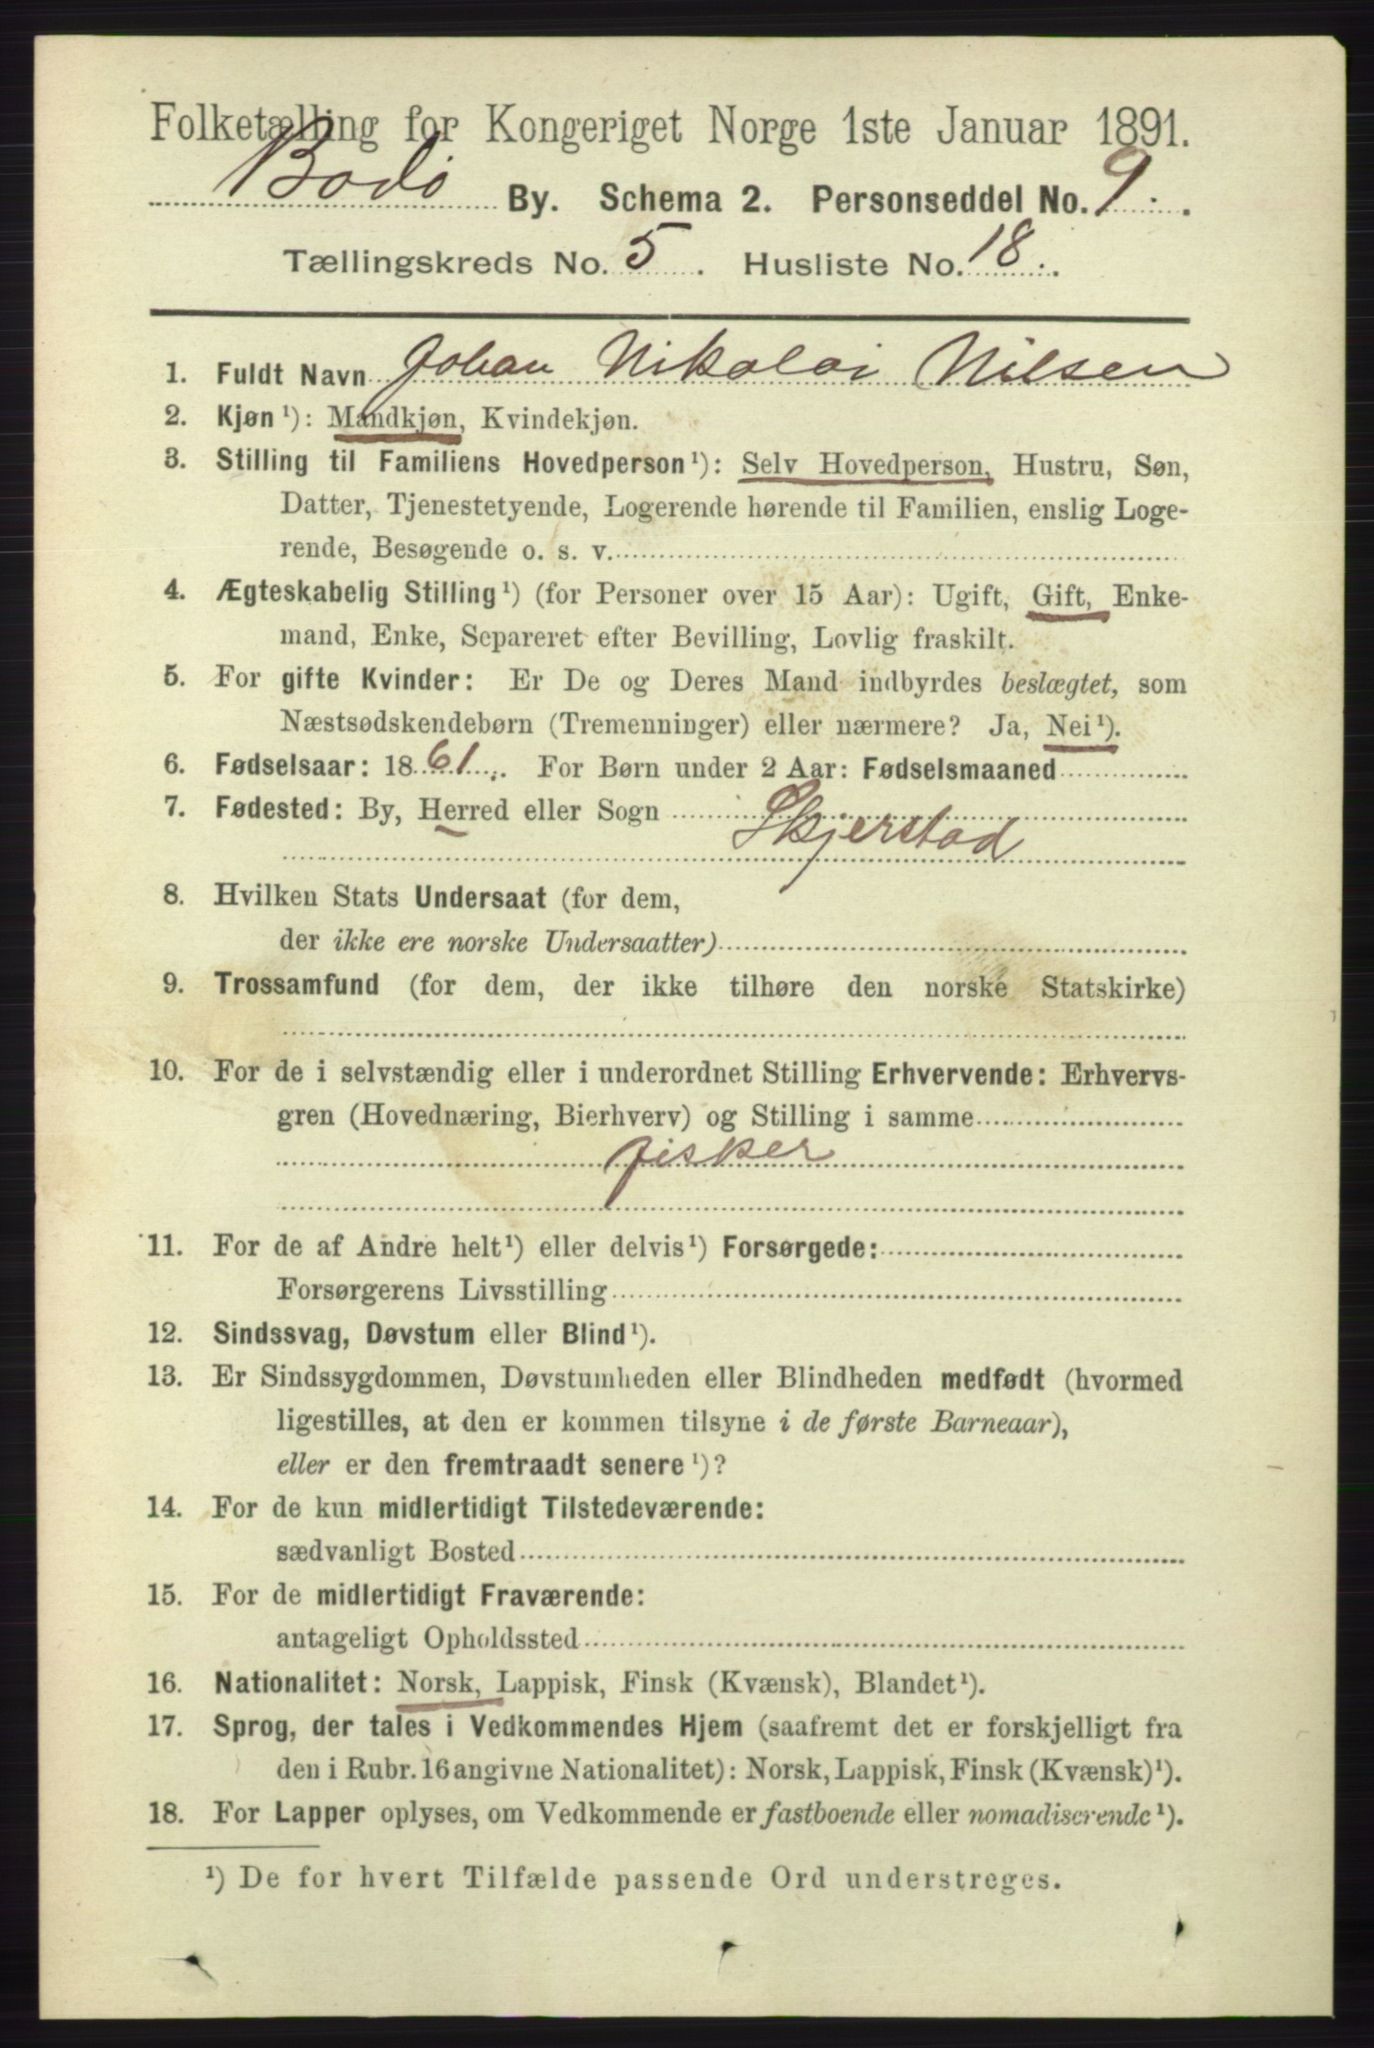 Folketælling for Kongeriget Norge 1ste Januar 1891.
Bodö By. Schema 2. Personseddel No. 9.
Tællingskreds No. 5. Husliste No. 18.
1. Fuldt Navn Johan Nikolai Nilsen
2. Kjøn¹): Mandkjøn, Kvindekjøn.
3. Stilling til Familiens Hovedperson¹): Selv Hovedperson, Hustru, Søn,
Datter, Tjenestetyende, Logerende hørende til Familien, enslig Loge-
rende, Besøgende o. s. v.
4. Ægteskabelig Stilling¹) (for Personer over 15 Aar): Ugift, Gift, Enke-
mand, Enke, Separeret efter Bevilling, Lovlig fraskilt.
5. For gifte Kvinder: Er De og Deres Mand indbyrdes beslægtet, som
Næstsødskendebørn (Tremenninger) eller nærmere? Ja, Nei¹).
6. Fødselsaar: 1861. For Børn under 2 Aar: Fødselsmaaned
7. Fødested: By, Herred eller Sogn
Skjerstad
8. Hvilken Stats Undersaat (for dem,
der ikke ere norske Undersaatter)
9. Trossamfund (for dem, der ikke tilhøre den norske Statskirke)
10. For de i selvstændig eller i underordnet Stilling Erhvervende: Erhvervs-
gren (Hovednæring, Bierhverv) og Stilling i samme
fisker
11. For de af Andre helt¹) eller delvis¹) Forsørgede:
Forsørgerens Livsstilling
12. Sindssvag, Døvstum eller Blind¹).
13. Er Sindssygdommen, Døvstumheden eller Blindheden medfødt (hvormed
ligestilles, at den er kommen tilsyne i de første Barneaar),
eller er den fremtraadt senere¹)?
14. For de kun midlertidigt Tilstedeværende:
sædvanligt Bosted
15. For de midlertidigt Fraværende:
antageligt Opholdssted
16. Nationalitet: Norsk, Lappisk, Finsk (Kvænsk), Blandet¹).
17. Sprog, der tales i Vedkommendes Hjem (saafremt det er forskjelligt fra
den i Rubr. 16 angivne Nationalitet): Norsk, Lappisk, Finsk (Kvænsk)¹).
18. For Lapper oplyses, om Vedkommende er fastboende eller nomadiserende¹).
¹) De for hvert Tilfælde passende Ord understreges.